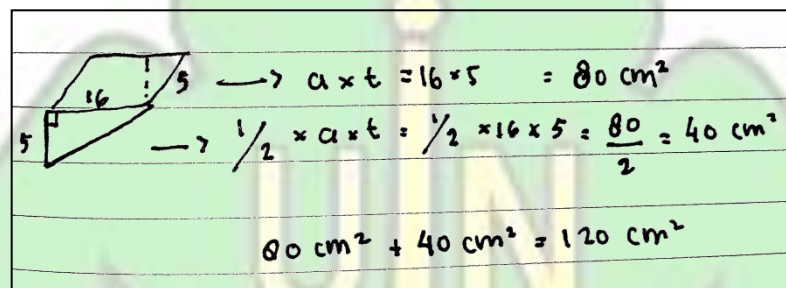 16 5 → a x t = 16 x 5 = 80 cm²
5 → 1/2 x a x t = 1/2 x 16 x 5 = 80/2 = 40 cm²
80 cm² + 40 cm² = 120 cm²
UIN